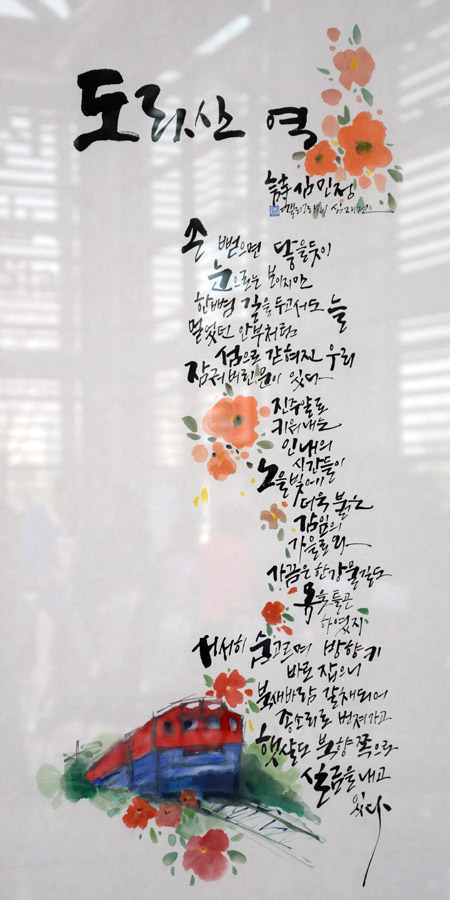 도라산 역
詩 김민정
캘리그라피 심재연
손 뻗으면 닿을듯이
눈으로는 보이지만
한뼘 길을 두고서도 늘
멀었던 안부처럼
섬으로 갇혀진 우리
잠겨버린 문이 있다
진주알로
키워내는
인내의
시간들이
노을빛에
더욱 붉은
강잎의
가을로 와
가끔은 한 강물길도
목을 틀곤
하였지
서서히 숨고르며 방향키
바로 잡으니
북새바람 갈채되어
종소리로 번져가고
햇살도 북향쪽으로
살금을 내고
있다